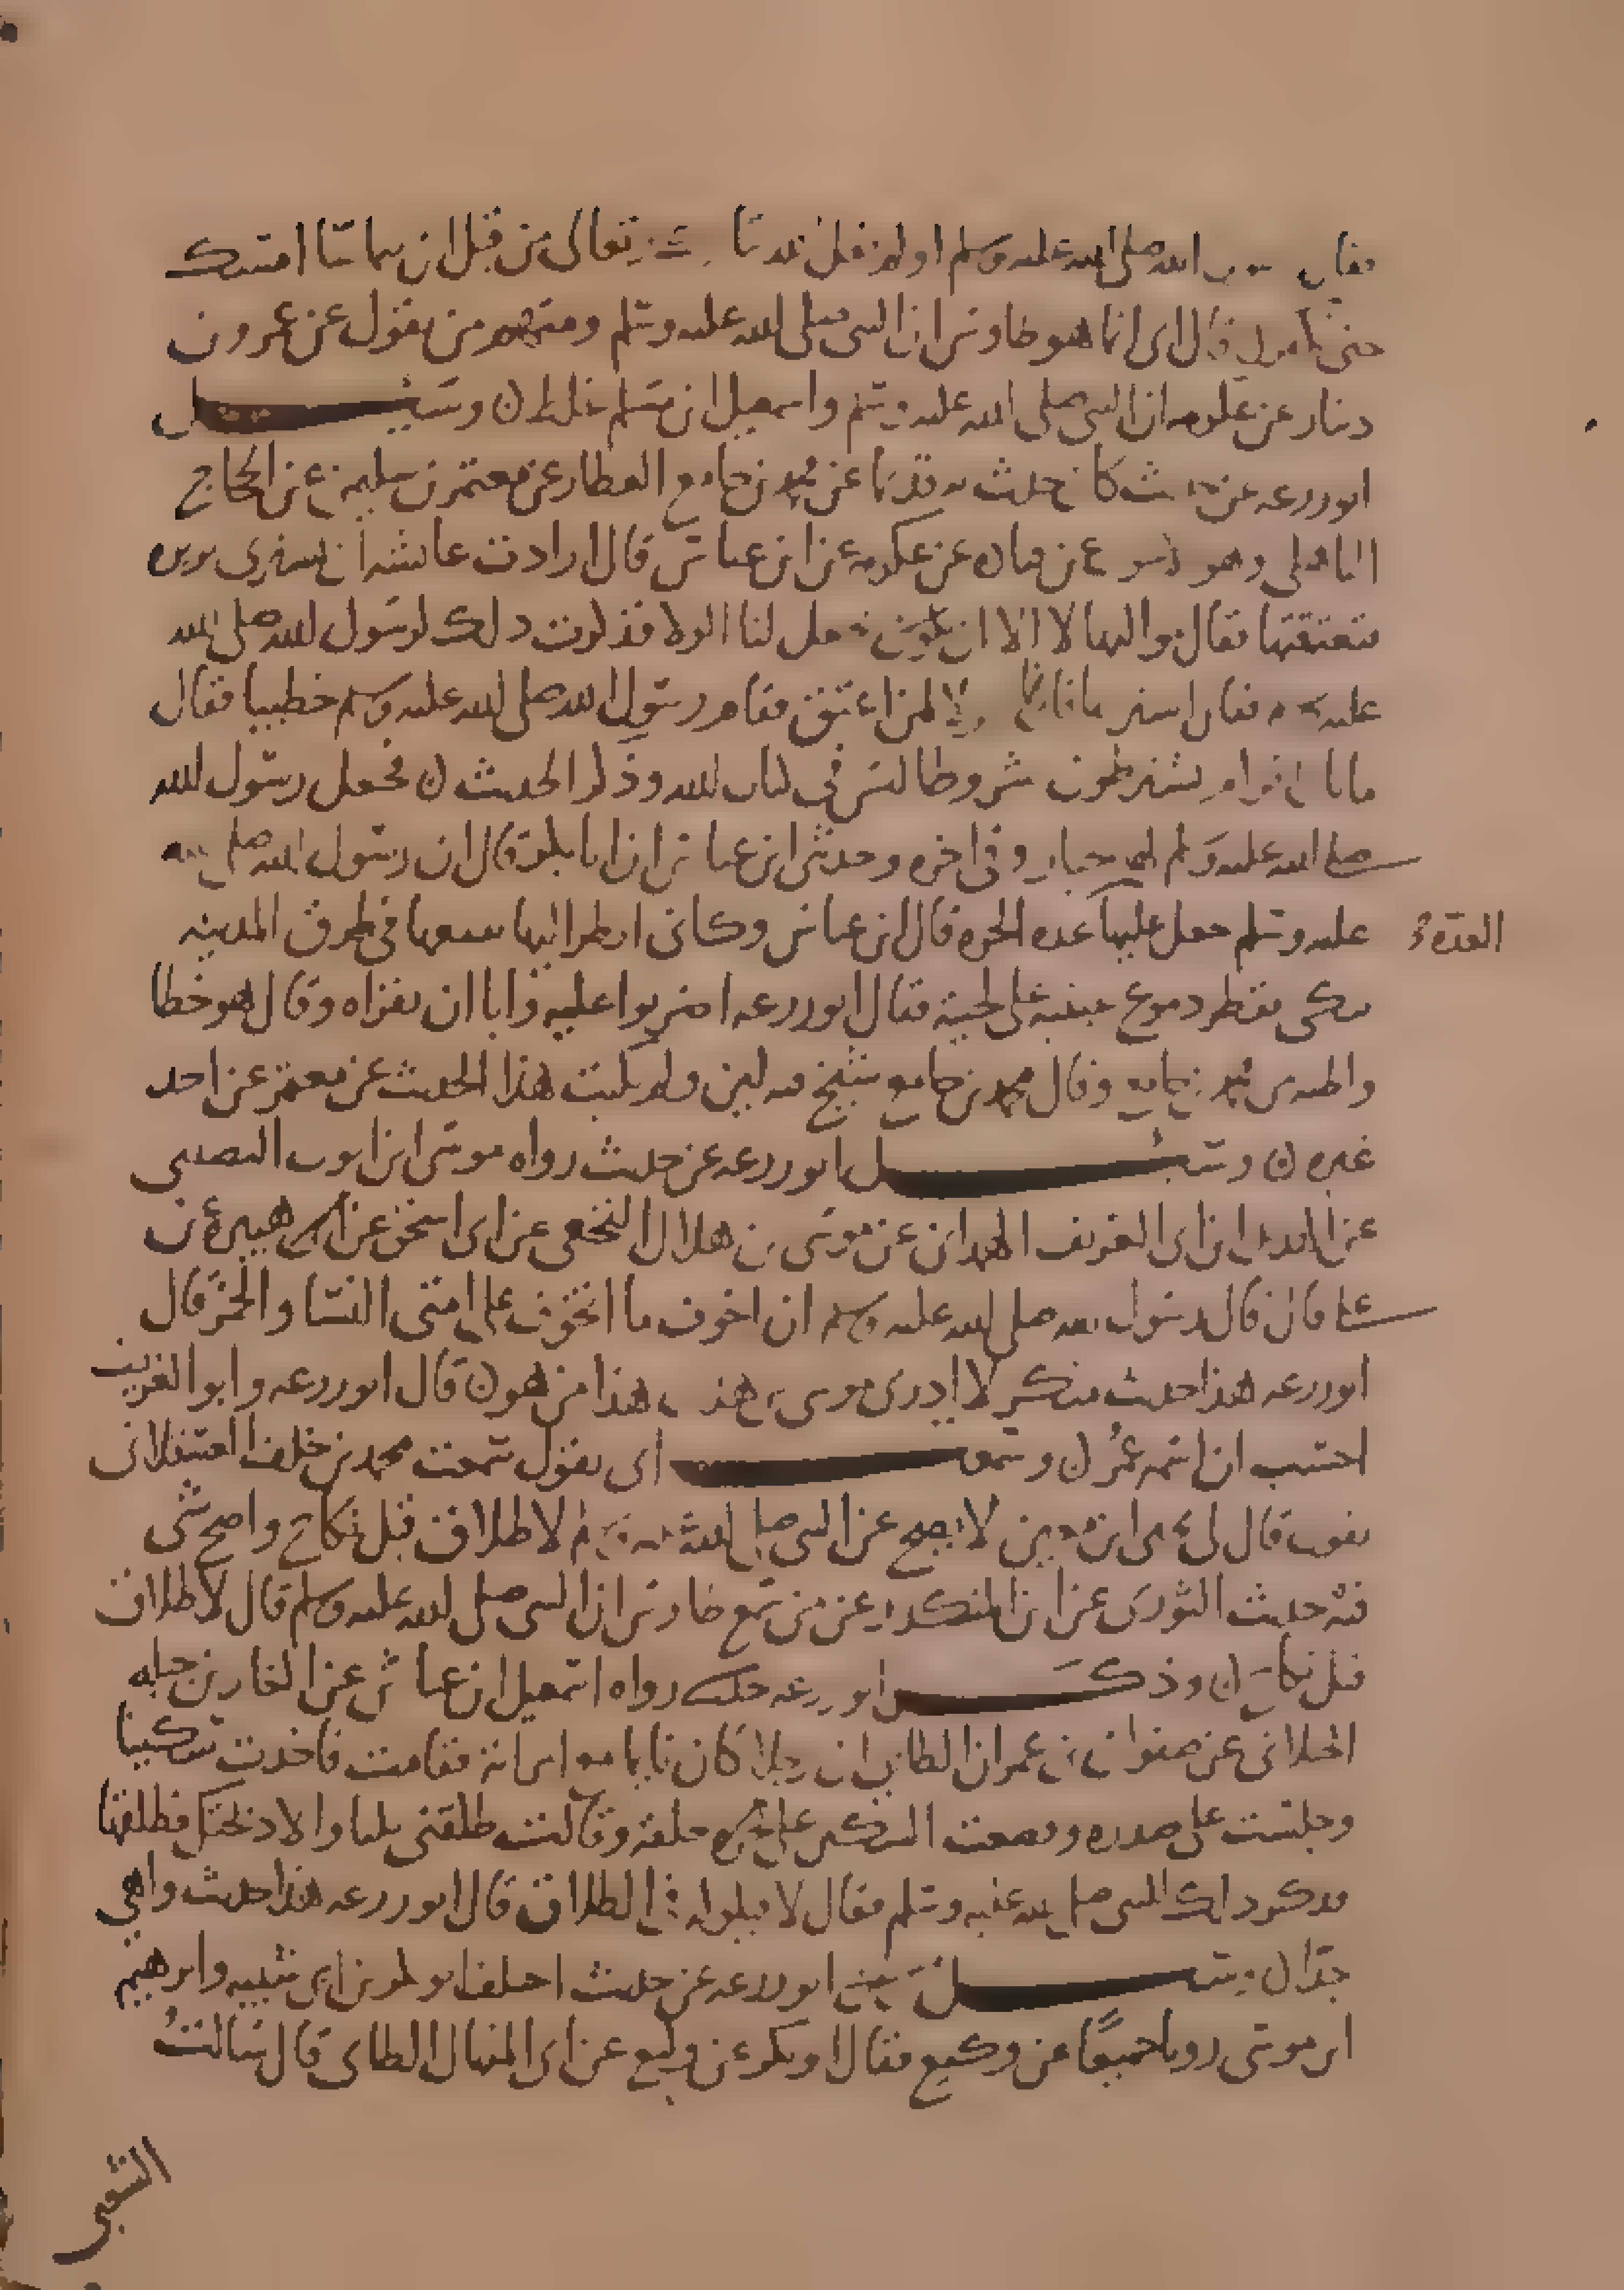 فقال رسول الله صلى الله عليه وسلم اولم يقل الله تعالى من قبل ان يتماسا امسك
حتى تكفر قال ابى انما هو طاوس ان النبى صلى الله عليه وسلم ومنهم من يقول عن عمرو بن
دينار عن عكرمه ان النبى صلى الله عليه وسلم واسمعيل ابن مسلم مخلط ن وسئل
ابو زرعه عن حديث كان حدث به قديما عن محمد بن جامع العطار عن معتمر بن سليمن عن الحجاج
الباهلى وهو عن قتاده عن عكرمه عن ابن عباس قال ارادت عائشه ان تشترى بريره
فتعتقها فقال مواليها لا الا ان تجعل لنا الولا فذكرت ذلك لرسول الله صلى الله
عليه وسلم فقال اشتريها فانما الولا لمن اعتق فقام رسول الله صلى الله عليه وسلم خطيبا فقال
ما بال اقوام يشترطون شروطا ليس فى كتاب الله وذكر الحديث ن فجعل رسول الله
صلى الله عليه وسلم لها خيار وفى اخره وحدثنى ابن عباس ان ابا بكره قال ان رسول الله صلى الله
عليه وسلم جعل عليها عده الحره قال ابن عباس وكانى انظر اليها يتبعها فى طرق المدينه
العدة
يبكى تقطر دموع عينيه على لحيته فقال ابو زرعه اضربوا عليه وابا ان يقراه وقال هو خطا
واظنه من محمد بن جامع وقال محمد بن جامع شيخ فيه لين ولم يكتب هذا الحديث عن معتمر عن احد
غيره ن وسئل ابو زرعه عن حديث رواه موسى ابن ايوب النصيبى
عن ابن ابى الغريف الهمدانى عن موسى بن هلال النخعى عن ابى اسحق عن هبيرة عن
على قال قال رسول الله صلى الله عليه وسلم ان اخوف ما اتخوف على امتى النسا والخمر قال
ابو زرعه هذا حديث منكر لا ادرى موسى هذا من هو ن قال ابو زرعه وابو الغريف
احسب ان اسمه عمر ن وسمعت ابى يقول سمعت محمد بن خلف العسقلانى
يقول قال لى يحيى ابن معين لا يصح عن النبى صلى الله عليه وسلم لا طلاق قبل نكاح واصح شى
فيه حديث الثورى عن ابن المنكدر عن من سمع طاوس ان النبى صلى الله عليه وسلم قال لا طلاق
قبل نكاح ن وذكر ابو زرعه حديث رواه اسمعيل ابن عياش عن الغاز بن جبله
الجبلانى عن صفوان بن عمران الطائى ان رجلا كان نايما مع امراته فقامت فاخذت سكينا
وجلست على صدره ووضعت السكين على حلقه وقالت طلقنى ثلثا والا ذبحتك فطلقها
فذكر ذلك للنبى صلى الله عليه وسلم فقال لا قيلوله فى الطلاق قال ابو زرعه هذا حديث واهى
جدا ن وسئل ابو زرعه عن حديث اختلف ابو بكر بن ابى شيبه وابرهيم
ابن موسى رويا جميعا عن وكيع فقال ابو بكر عن وكيع عن ابى المنهال الطاى قال سالت
الشعبى